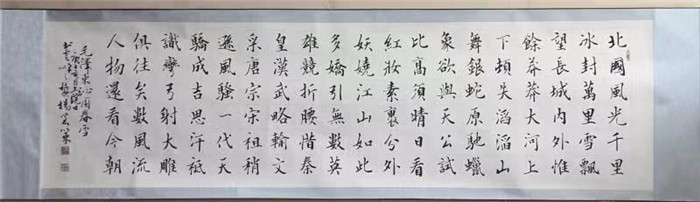 北國風光千里
冰封萬里雪飄
望長城內外惟
餘莽莽大河上
下頓失滔滔山
舞銀蛇原馳蠟
象欲與天公試
比高須晴日看
紅妝素裹分外
妖嬈江山如此
多嬌引無數英
雄競折腰惜秦
皇漢武略輸文
采唐宗宋祖稍
遜風騷一代天
驕成吉思汗祗
識彎弓射大雕
俱往矣數風流
人物還看今朝
毛澤東沁園春雪